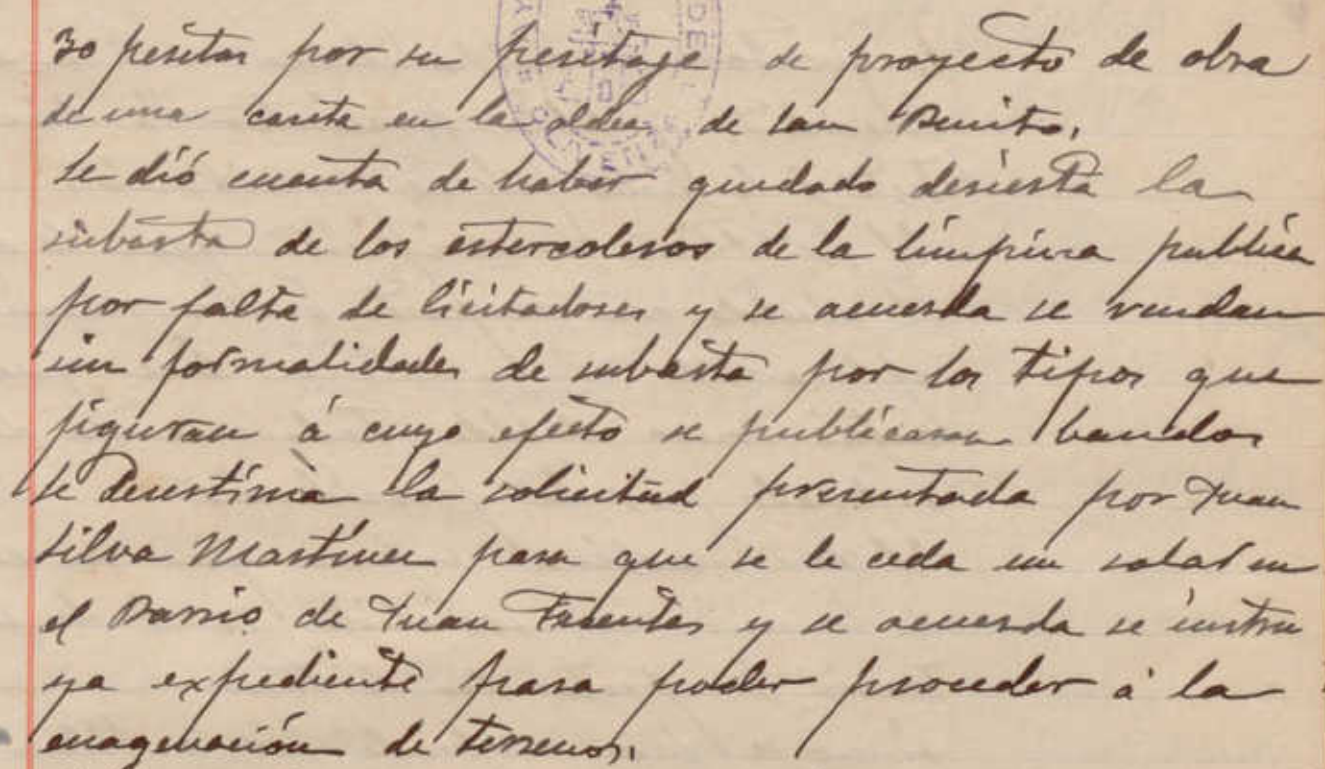 30 pesetas por su peritage de proyecto de obra
de una casita en la aldea de San Benito.
Se dió cuenta de haber quedado desierta la
subasta de los estercoleros de la limpieza publica
por falta de licitadores y se acuerda se vendan
sin formalidades de subasta por los tipos que
figuran á cuyo efecto se publicaran bandos
Se desestima la solicitud presentada por Juan
Silva Martinez para que se le ceda un solar en
el Barrio de Juan Fuentes y se acuerda se instru
ya expediente para poder proceder á la
enagenación de terrenos.